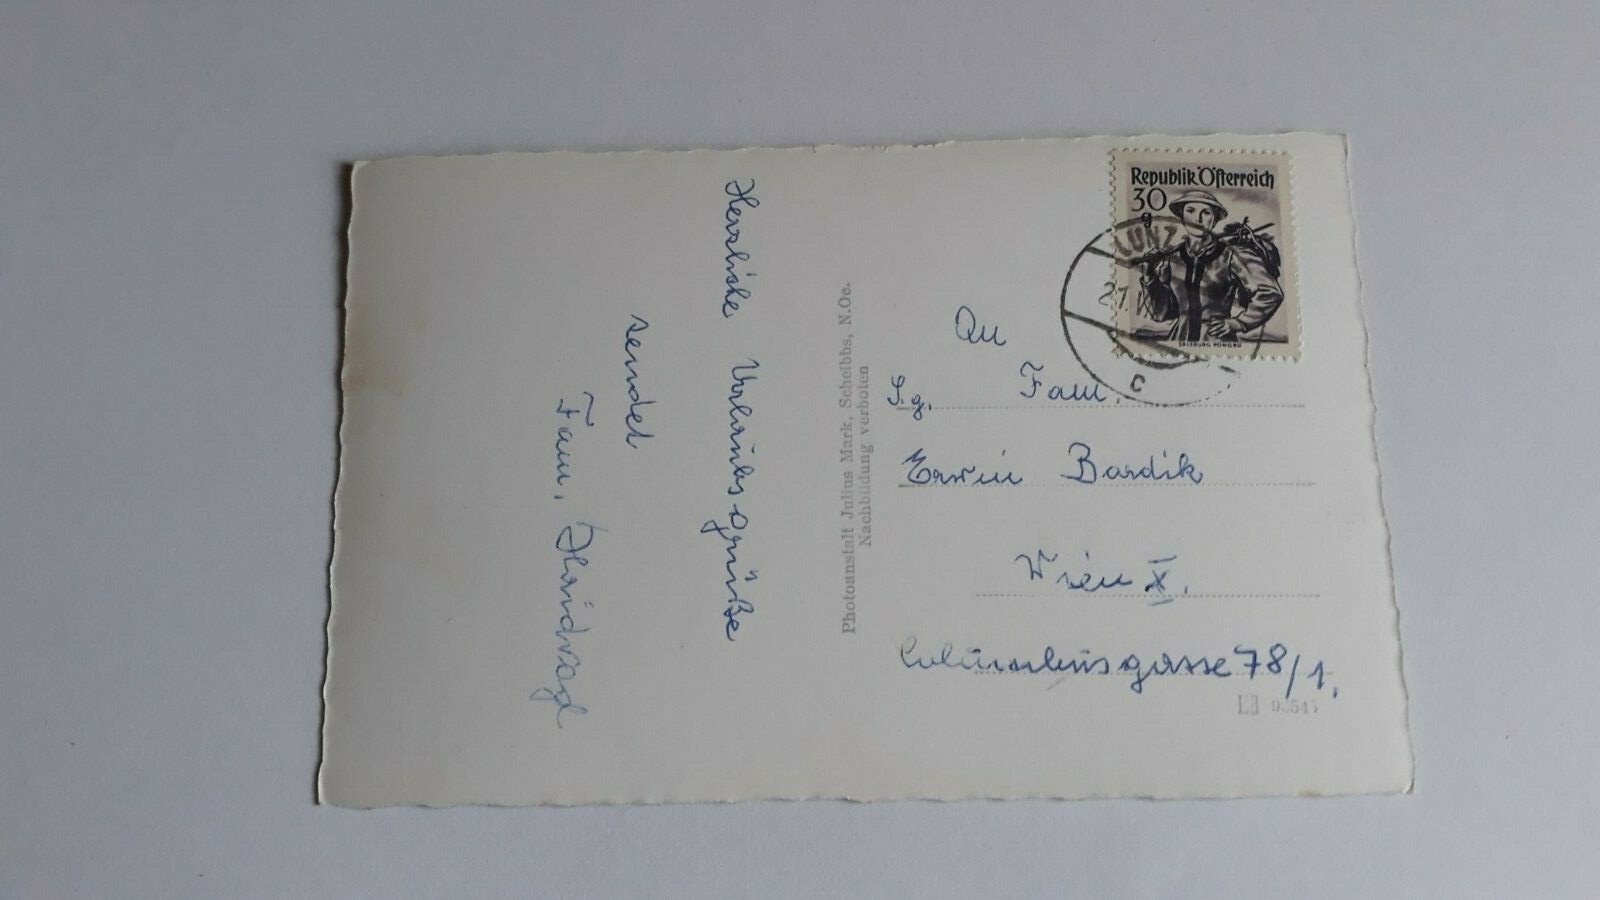 Herzliche Urlaubsgrüße
sendet
Fam.
Photoanstalt Julius Mark, Scheibbs, N.Oe.
Nachbildung verboten
Republik Österreich
30
g
SALZBURG PONGAU
LUNZ
21. VII
c
An
S.g. Fam.
Erwin Bardik
Wien X.
Columbusgasse 78/1.